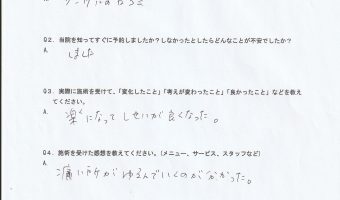 Q2. 当院を知ってすぐに予約しましたか？しなかったとしたらどんなことが不安でしたか？
A. しました
Q3. 実際に施術を受けて、「変化したこと」「考えが変わったこと」「良かったこと」などを教え
てください。
A. 楽になって しせいが良くなった。
Q4. 施術を受けた感想を教えてください。（メニュー、サービス、スタッフなど）
A. 痛い所がゆるんでいくのが分かった。